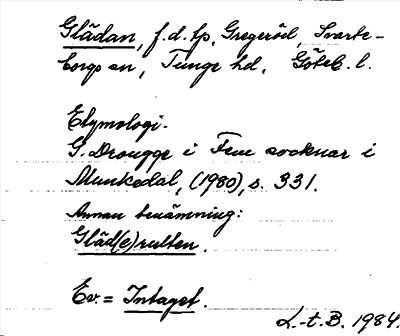 Glädan, f.d. tp, Gregeröd, Svarte-
borgs sn, Tunge hd, Göteb. l.
Etymologi.
G. Drougge i Fem socknar i
Munkedal, (1980), s. 331.
Annan benämning:
Gläd(e)rulten.
Ev. = Intaget.
L.-t. B. 1984.